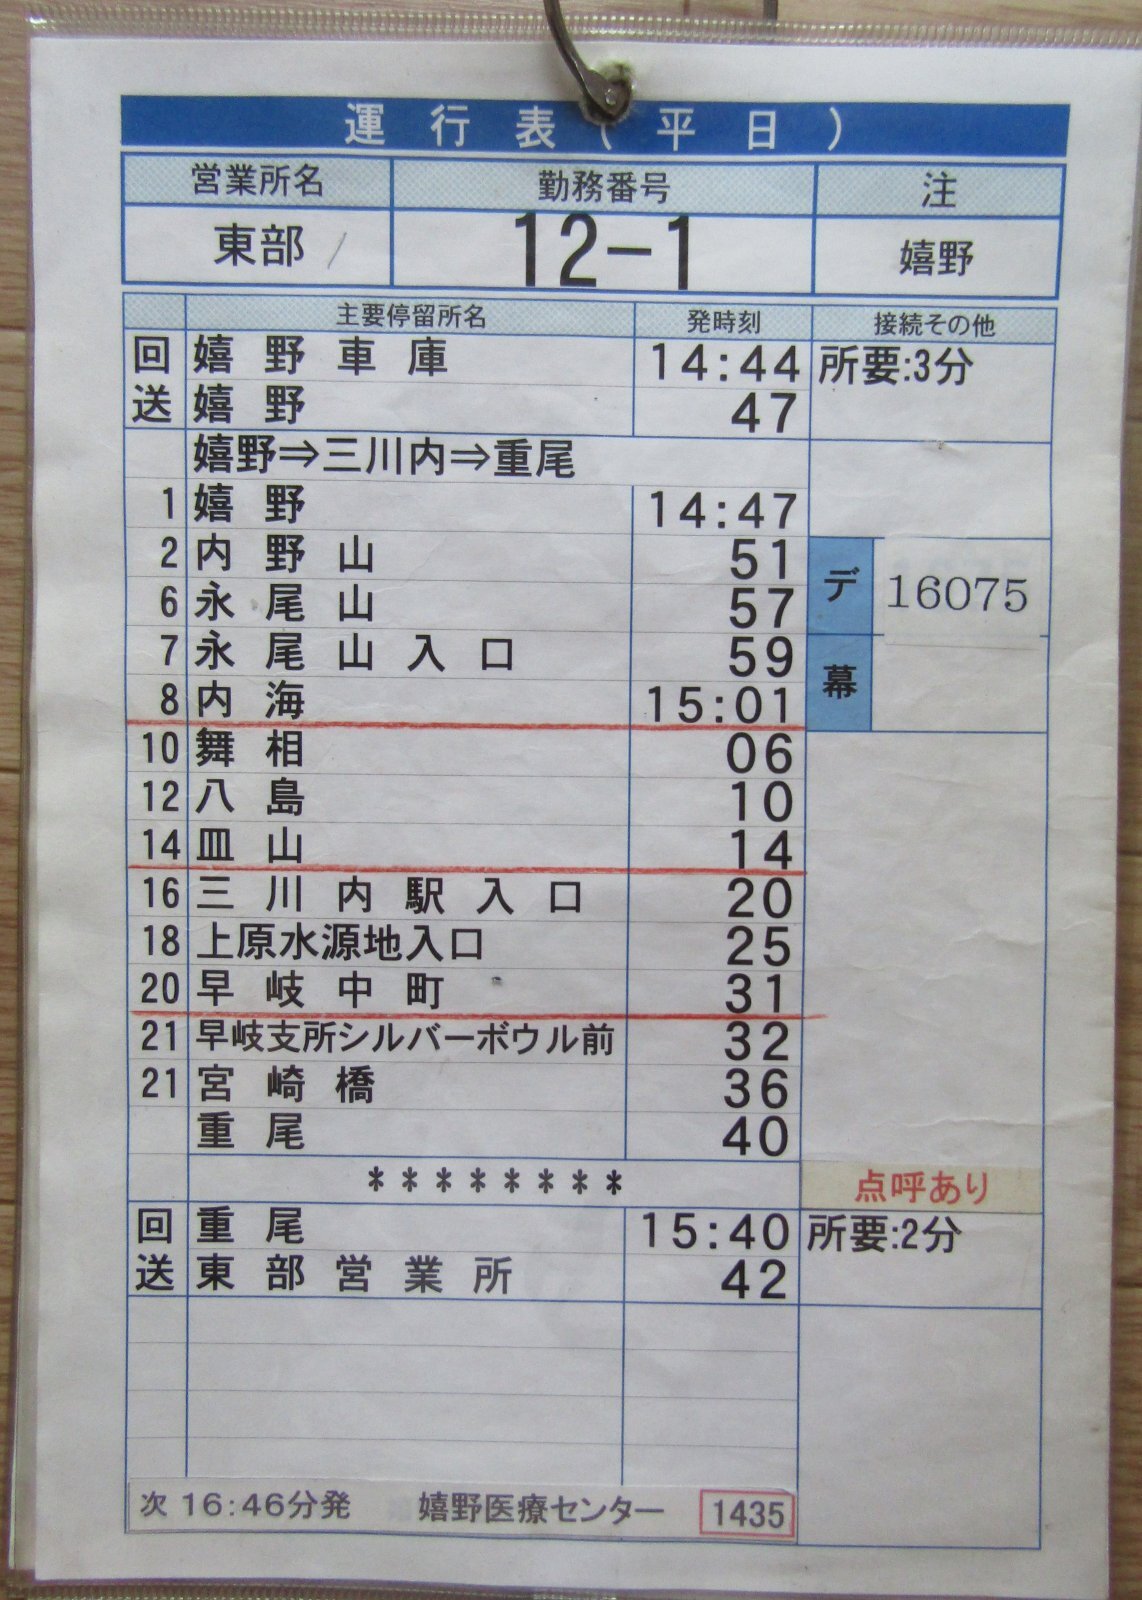 運行表(平日)
営業所名 勤務番号 注
東部 12-1 嬉野
主要停留所名 発時刻 接続その他
回 嬉野車庫 14:44 所要:3分
送 嬉野 47
嬉野⇒三川内⇒重尾
1 嬉野 14:47
2 内野山 51
デ 16075
6 永尾山 57
7 永尾山入口 59
幕
8 内海 15:01
10 舞相 06
12 八島 10
14 皿山 14
16 三川内駅入口 20
18 上原水源地入口 25
20 早岐中町 31
21 早岐支所シルバーボウル前 32
21 宮崎橋 36
重尾 40
******** 点呼あり
回 重尾 15:40 所要:2分
送 東部営業所 42
次 16:46分発 嬉野医療センター 1435